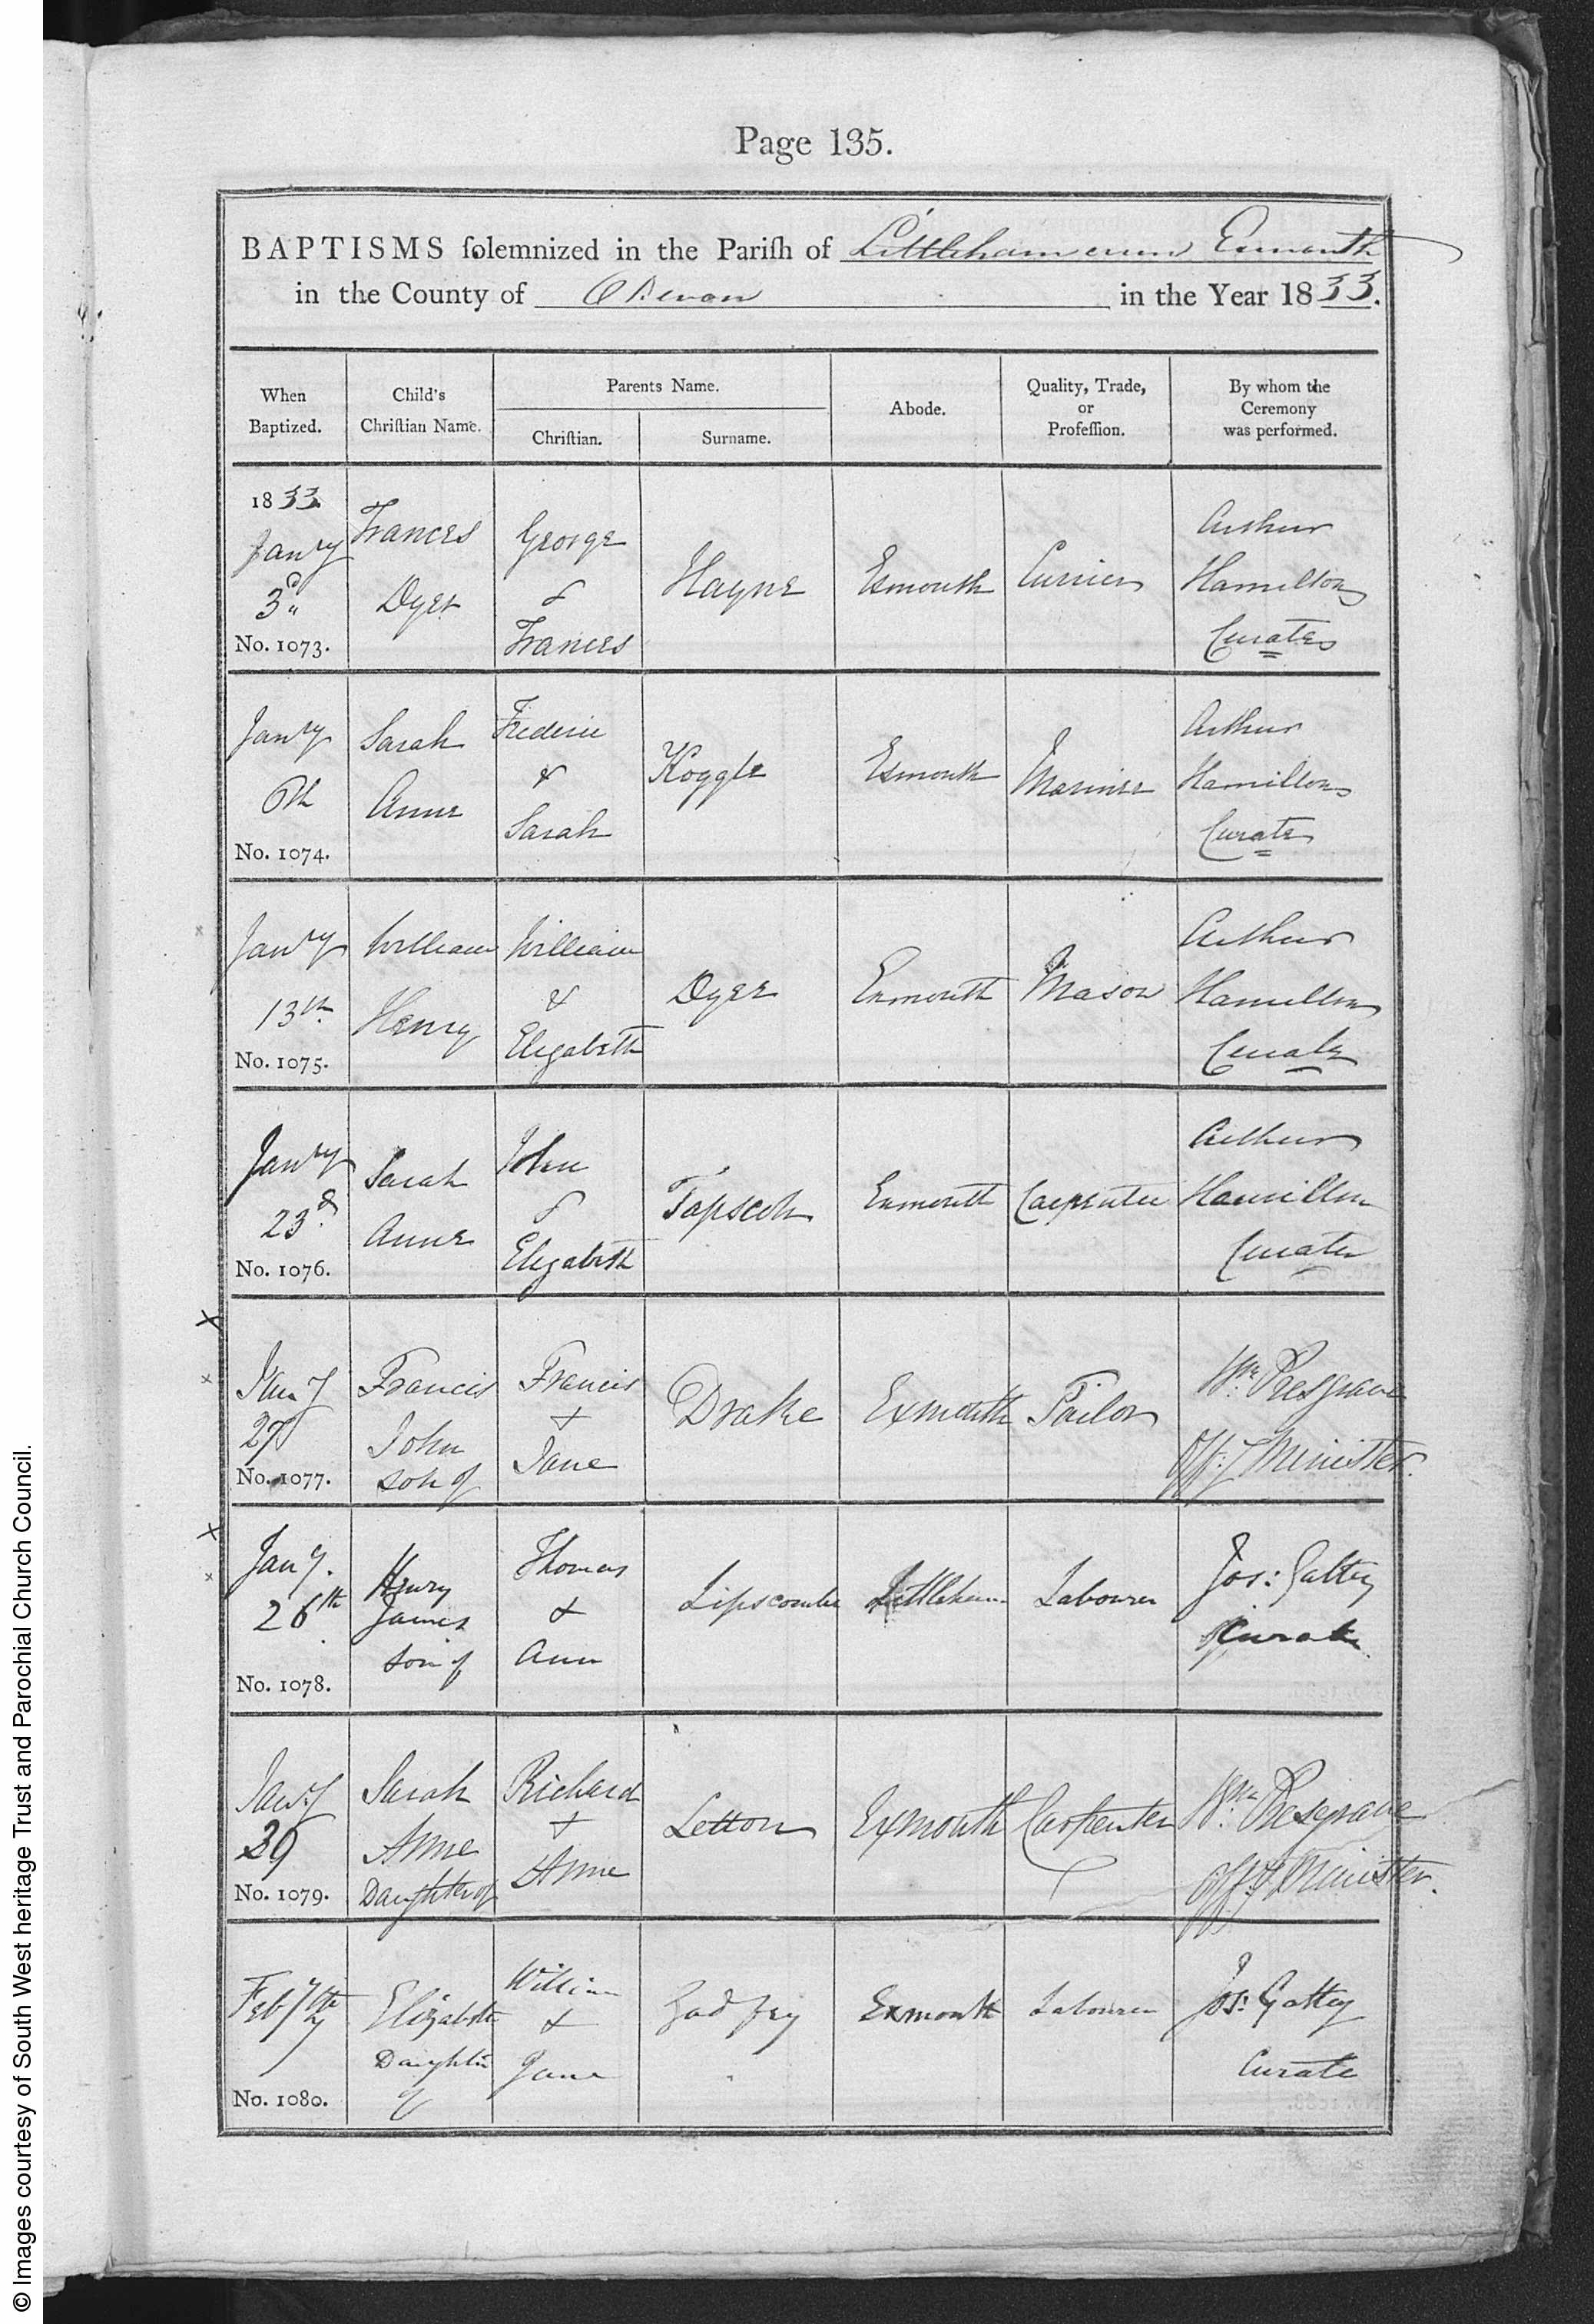 Page 135.
BAPTISMS solemnized in the Parish of Littleham cum Exmouth
in the County of Devon in the Year 1833.
When
Baptized.
Child's
Christian Name.
Parents Name.
Christian.
Surname.
Abode.
Quality, Trade,
or
Profession.
By whom the
Ceremony
was performed.
1833
Jan'ry
3d
No. 1073.
Frances
Dyer
George
&
Frances
Hayne
Exmouth
Currier
Arthur
Hamilton
Curate
Jan'ry
6th
No. 1074.
Sarah
Anne
Frederic
&
Sarah
Koggle
Exmouth
Mariner
Arthur
Hamilton
Curate
Jan'ry
13th
No. 1075.
William
Henry
William
&
Elizabeth
Dyer
Exmouth
Mason
Arthur
Hamilton
Curate
Jan'ry
23d
No. 1076.
Sarah
Anne
John
&
Elizabeth
Tapscott
Exmouth
Carpenter
Arthur
Hamilton
Curate
Jan'y
27
No. 1077.
Francis
John
son of
Francis
+
Jane
Drake
Exmouth
Tailor
Wm. Presgrave
Off:g Minister.
Jan'y.
26th
No. 1078.
Henry
James
son of
Thomas
&
Ann
Lipscombe
Littleham
Labourer
Jos: Gattey
Curate.
Jan'y
30
No. 1079.
Sarah
Anne
Daughter of
Richard
+
Anne
Letton
Exmouth
Carpenter
Wm. Presgrave
Off:g Minister.
Feb'y 7th
No. 1080.
Elizabeth
Daughter
of
William
&
Jane
Godfrey
Exmouth
Labourer
Jos: Gattey
Curate
© Images courtesy of South West heritage Trust and Parochial Church Council.